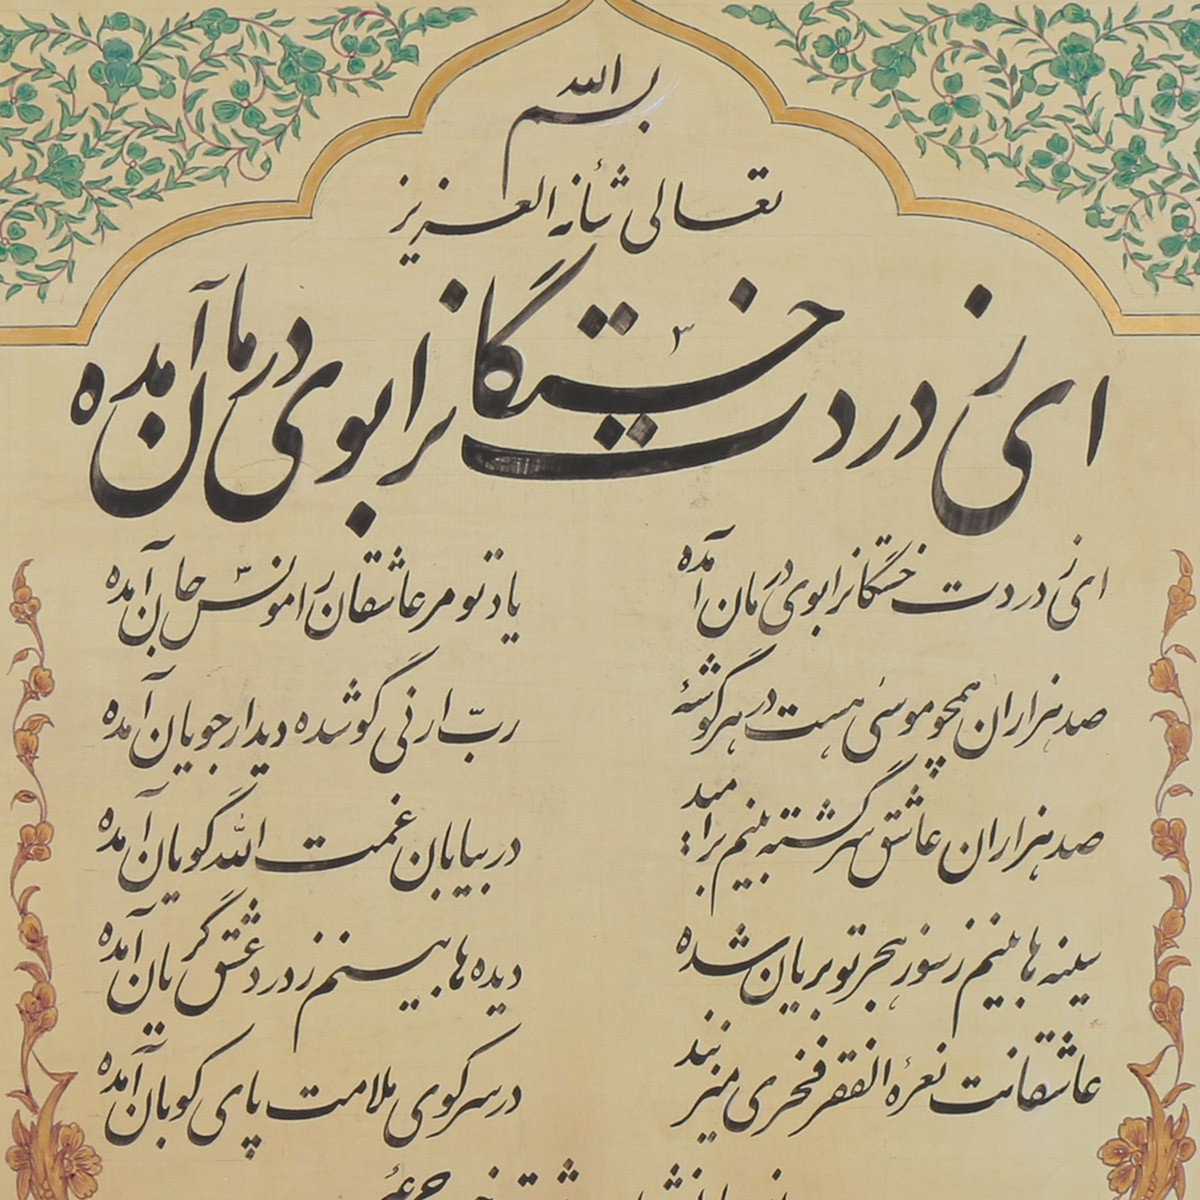 بسم الله
تعالی شأنه العزیز
ای ز درد دت خستگانرا بوی درمان آمده
ای ز درد دت خستگانرا بوی درمان آمده یاد تو مر عاشقان را مونس جان آمده
صد هزاران همچو موسی هست در هر گوشهٔ ربّ ارنی گو شده دیدار جویان آمده
صد هزاران عاشق سرگشته بینم بر امید در بیابان غمت الله گویان آمده
سینه ها بینم ز سوز هجر تو بریان شده دیده ها بینم ز درد عشق گریان آمده
عاشقانت نعرهٔ الفقر فخری میزنند در سر کوی ملامت پای کوبان آمده